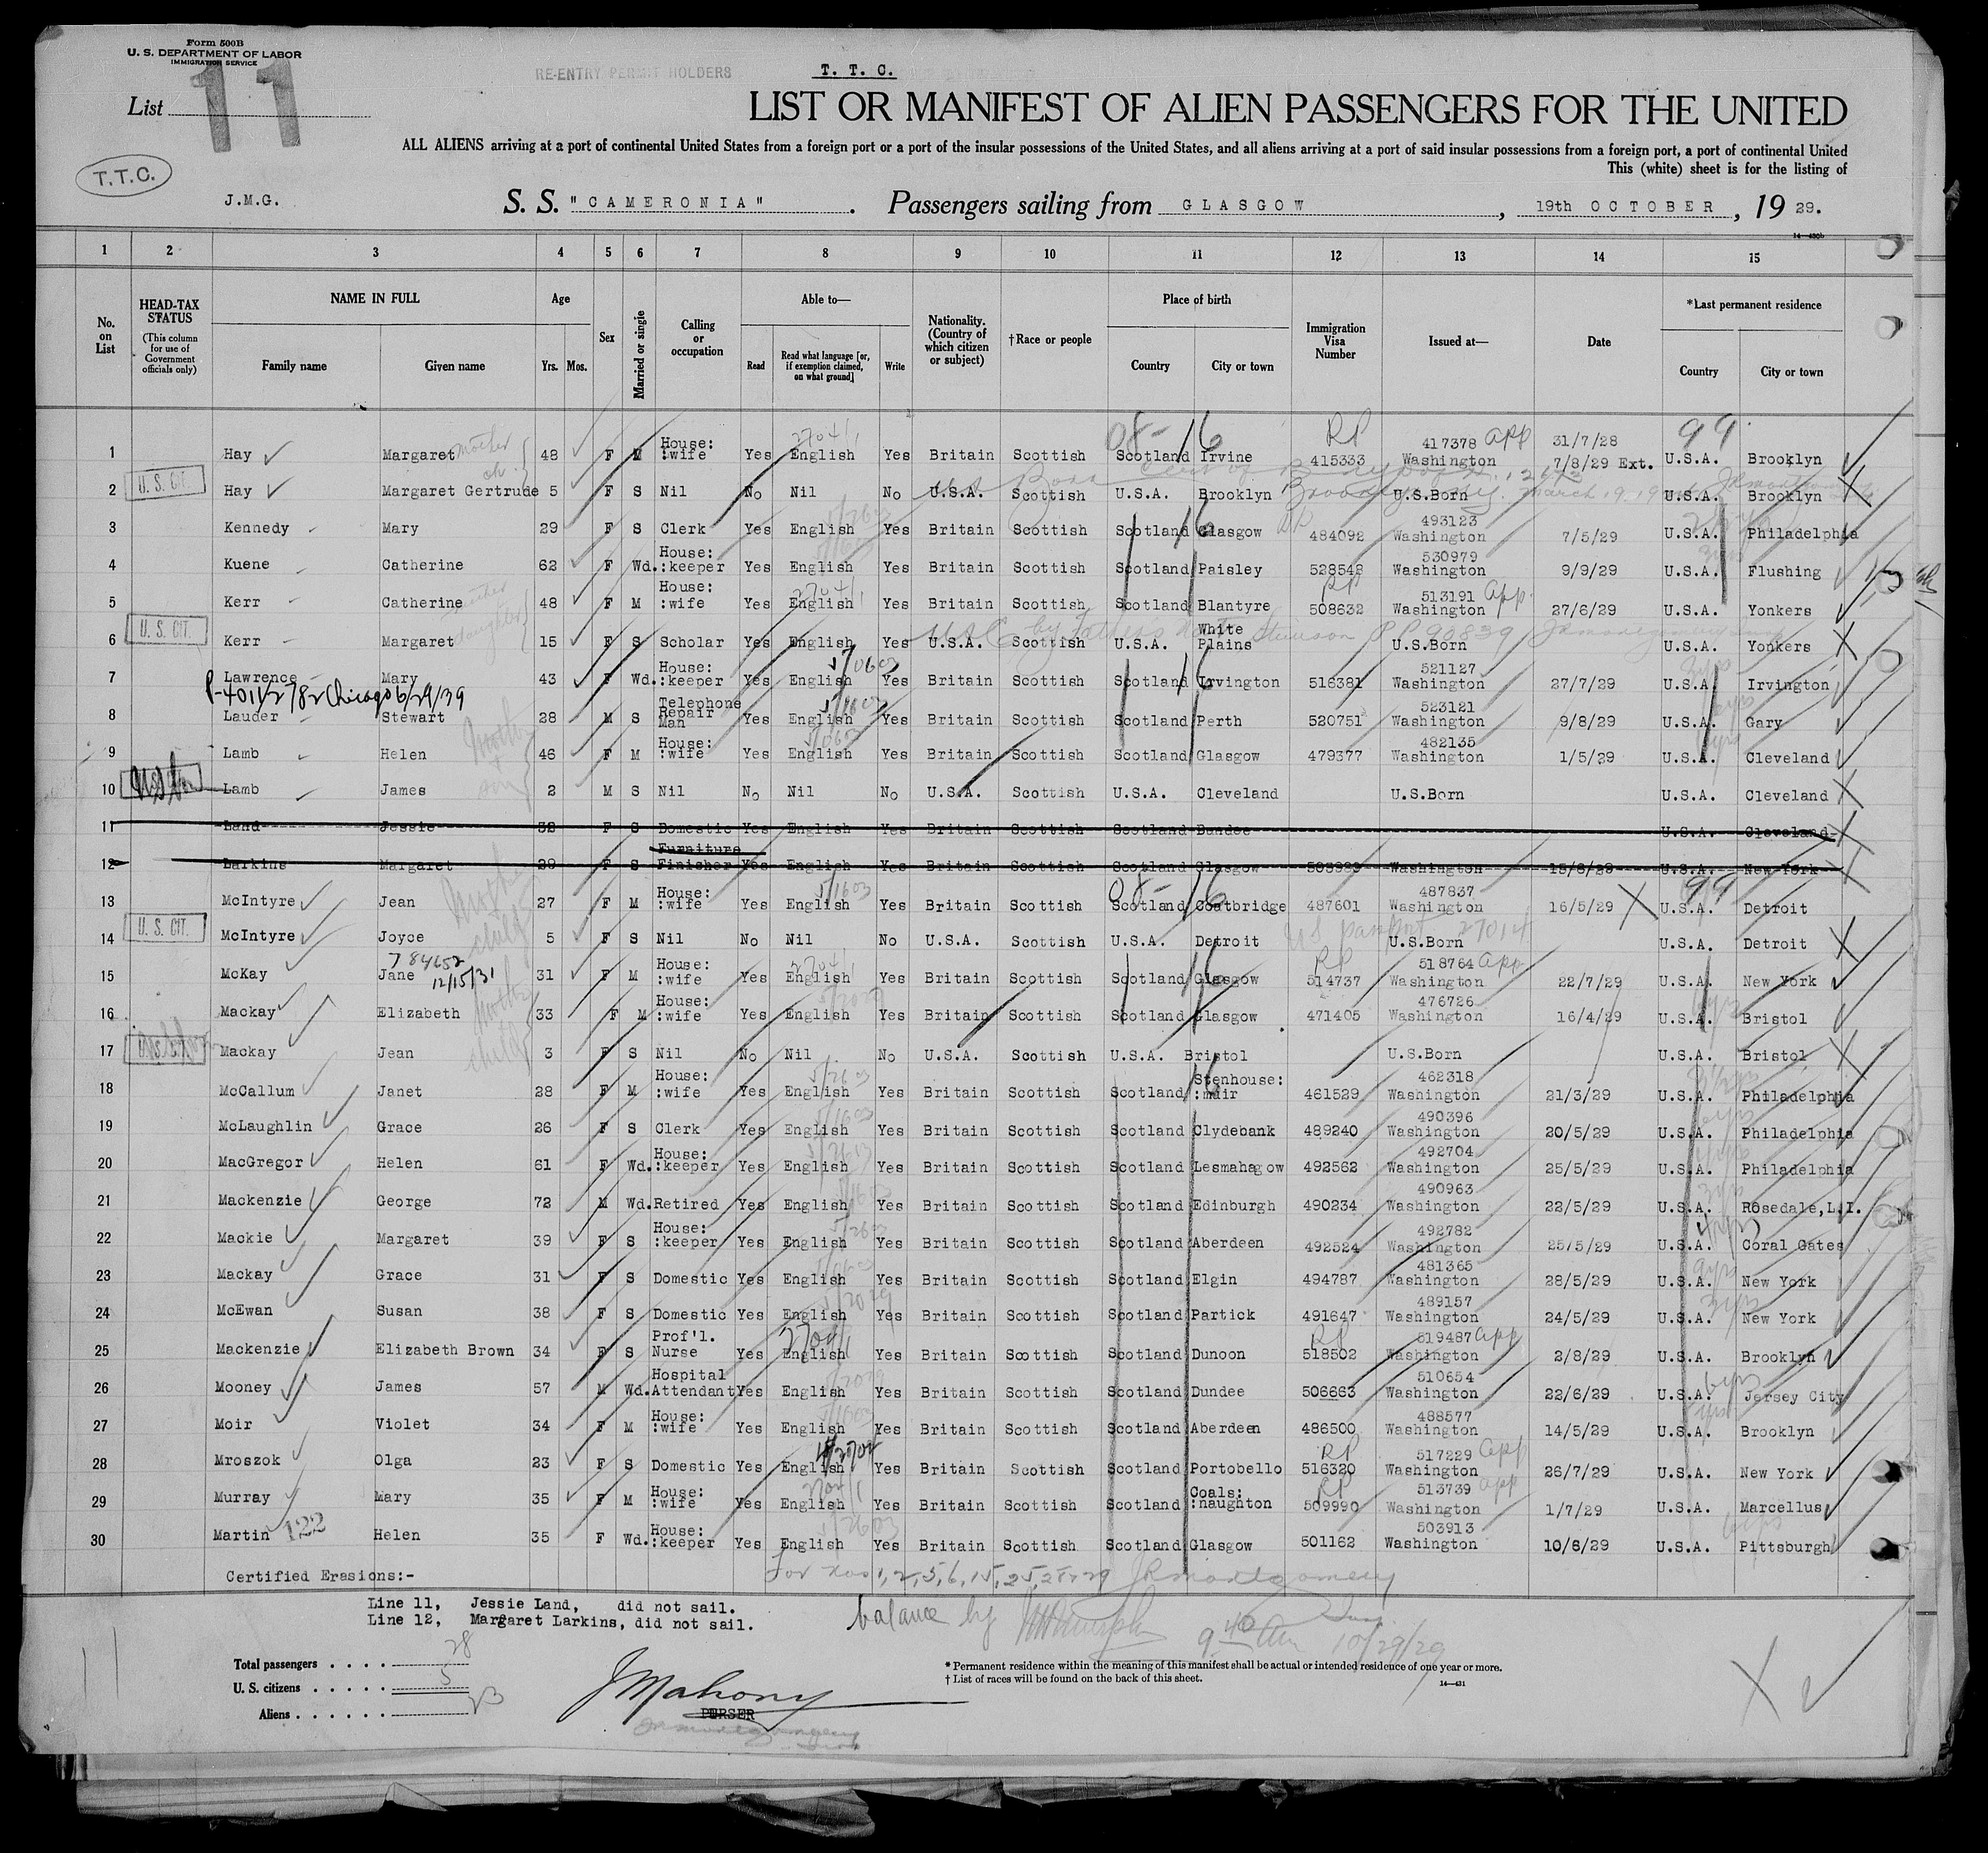 Form 500B
U. S. DEPARTMENT OF LABOR
IMMIGRATION SERVICE
11
RE-ENTRY PERMIT HOLDERS
T. T. C.
List
LIST OR MANIFEST OF ALIEN PASSENGERS FOR THE UNITED
ALL ALIENS arriving at a port of continental United States from a foreign port or a port of the insular possessions of the United States, and all aliens arriving at a port of said insular possessions from a foreign port, a port of continental United
This (white) sheet is for the listing of
T.T.C.
J.M.G.
S. S. "CAMERONIA". Passengers sailing from GLASGOW, 19th OCTOBER, 19 29.
14—430b
1 2 3 4 5 6 7 8 9 10 11 12 13 14 15
No. on List
HEAD-TAX STATUS (This column for use of Government officials only)
NAME IN FULL Family name Given name
Age Yrs. Mos.
Sex
Married or single
Calling or occupation
Able to— Read Read what language [or, if exemption claimed, on what ground] Write
Nationality. (Country of which citizen or subject)
†Race or people
Place of birth Country City or town
Immigration Visa Number
Issued at—
Date
*Last permanent residence Country City or town
08-16 RP app 99
1 Hay Margaret mother 48 F M House: :wife Yes English Yes Britain Scottish Scotland Irvine 415333 417378 Washington 31/7/28 7/8/29 Ext. U.S.A. Brooklyn
2 U. S. CIT. Hay Margaret Gertrude 5 F S Nil No Nil No U.S.A. Scottish U.S.A. Brooklyn U.S.Born U.S.A. Brooklyn
3 Kennedy Mary 29 F S Clerk Yes English Yes Britain Scottish Scotland Glasgow 484092 493123 Washington 7/5/29 U.S.A. Philadelphia
4 Kuene Catherine 62 F Wd. House: :keeper Yes English Yes Britain Scottish Scotland Paisley 528548 530979 Washington 9/9/29 U.S.A. Flushing
5 Kerr Catherine mother 48 F M House: :wife Yes English Yes Britain Scottish Scotland Blantyre RP 508632 513191 app. Washington 27/6/29 U.S.A. Yonkers
6 U. S. CIT. Kerr Margaret daughter 15 F S Scholar Yes English Yes U.S.A. Scottish U.S.A. White Plains U.S.Born U.S.A. Yonkers
7 Lawrence Mary 43 F Wd. House: :keeper Yes English Yes Britain Scottish Scotland Irvington 516381 521127 Washington 27/7/29 U.S.A. Irvington
8 Lauder Stewart 28 M S Telephone Repair Man Yes English Yes Britain Scottish Scotland Perth 520751 523121 Washington 9/8/29 U.S.A. Gary
9 Lamb Helen 46 F M House: :wife Yes English Yes Britain Scottish Scotland Glasgow 479377 482135 Washington 1/5/29 U.S.A. Cleveland
10 Lamb James 2 M S Nil No Nil No U.S.A. Scottish U.S.A. Cleveland U.S.Born U.S.A. Cleveland
11 Land Jessie 32 F S Domestic Yes English Yes Britain Scottish Scotland Dundee U.S.A. Cleveland
12 Larkins Margaret 28 F S Furniture Finisher Yes English Yes Britain Scottish Scotland Glasgow Washington 15/8/29 U.S.A. New York
08-16 99
13 McIntyre Jean 27 F M House: :wife Yes English Yes Britain Scottish Scotland Coatbridge 487601 487837 Washington 16/5/29 U.S.A. Detroit
14 U. S. CIT. McIntyre Joyce 5 F S Nil No Nil No U.S.A. Scottish U.S.A. Detroit U.S.Born U.S.A. Detroit
784652 12/15/31
15 McKay Jane 31 F M House: :wife Yes English Yes Britain Scottish Scotland Glasgow RP 514737 518764 app Washington 22/7/29 U.S.A. New York
16 Mackay Elizabeth 33 F M House: :wife Yes English Yes Britain Scottish Scotland Glasgow 471405 476726 Washington 16/4/29 U.S.A. Bristol
17 Mackay Jean 3 F S Nil No Nil No U.S.A. Scottish U.S.A. Bristol U.S.Born U.S.A. Bristol
18 McCallum Janet 28 F M House: :wife Yes English Yes Britain Scottish Scotland Stenhouse: :muir 461529 462318 Washington 21/3/29 U.S.A. Philadelphia
19 McLaughlin Grace 26 F S Clerk Yes English Yes Britain Scottish Scotland Clydebank 489240 490396 Washington 20/5/29 U.S.A. Philadelphia
20 MacGregor Helen 61 F Wd. House: :keeper Yes English Yes Britain Scottish Scotland Lesmahagow 492562 492704 Washington 25/5/29 U.S.A. Philadelphia
21 Mackenzie George 72 M Wd. Retired Yes English Yes Britain Scottish Scotland Edinburgh 490234 490963 Washington 22/5/29 U.S.A. Rosedale,L.I.
22 Mackie Margaret 39 F S House: :keeper Yes English Yes Britain Scottish Scotland Aberdeen 492524 492782 Washington 25/5/29 U.S.A. Coral Gates
23 Mackay Grace 31 F S Domestic Yes English Yes Britain Scottish Scotland Elgin 494787 481365 Washington 28/5/29 U.S.A. New York
24 McEwan Susan 38 F S Domestic Yes English Yes Britain Scottish Scotland Partick 491647 489157 Washington 24/5/29 U.S.A. New York
25 Mackenzie Elizabeth Brown 34 F S Prof'l. Nurse Yes English Yes Britain Scottish Scotland Dunoon RP 518502 519487 app Washington 2/8/29 U.S.A. Brooklyn
26 Mooney James 57 M Wd. Hospital Attendant Yes English Yes Britain Scottish Scotland Dundee 506663 510654 Washington 22/6/29 U.S.A. Jersey City
27 Moir Violet 34 F M House: :wife Yes English Yes Britain Scottish Scotland Aberdeen 486500 488577 Washington 14/5/29 U.S.A. Brooklyn
28 Mroszok Olga 23 F S Domestic Yes English Yes Britain Scottish Scotland Portobello RP 516320 517229 app Washington 26/7/29 U.S.A. New York
29 Murray Mary 35 F M House: :wife Yes English Yes Britain Scottish Scotland Coals: :naughton RP 509990 513739 app Washington 1/7/29 U.S.A. Marcellus
30 Martin 122 Helen 35 F Wd. House: :keeper Yes English Yes Britain Scottish Scotland Glasgow 501162 503913 Washington 10/6/29 U.S.A. Pittsburgh
Certified Erasions:-
For nos 1, 2, 5, 6, 15, 25, 28, 29 JRMontgomery
Line 11, Jessie Land, did not sail.
Line 12, Margaret Larkins, did not sail.
balance by
9 40 Am 10/29/29
Total passengers 28
U. S. citizens 5
Aliens 23
JMahony
PURSER
* Permanent residence within the meaning of this manifest shall be actual or intended residence of one year or more.
† List of races will be found on the back of this sheet.
14—431